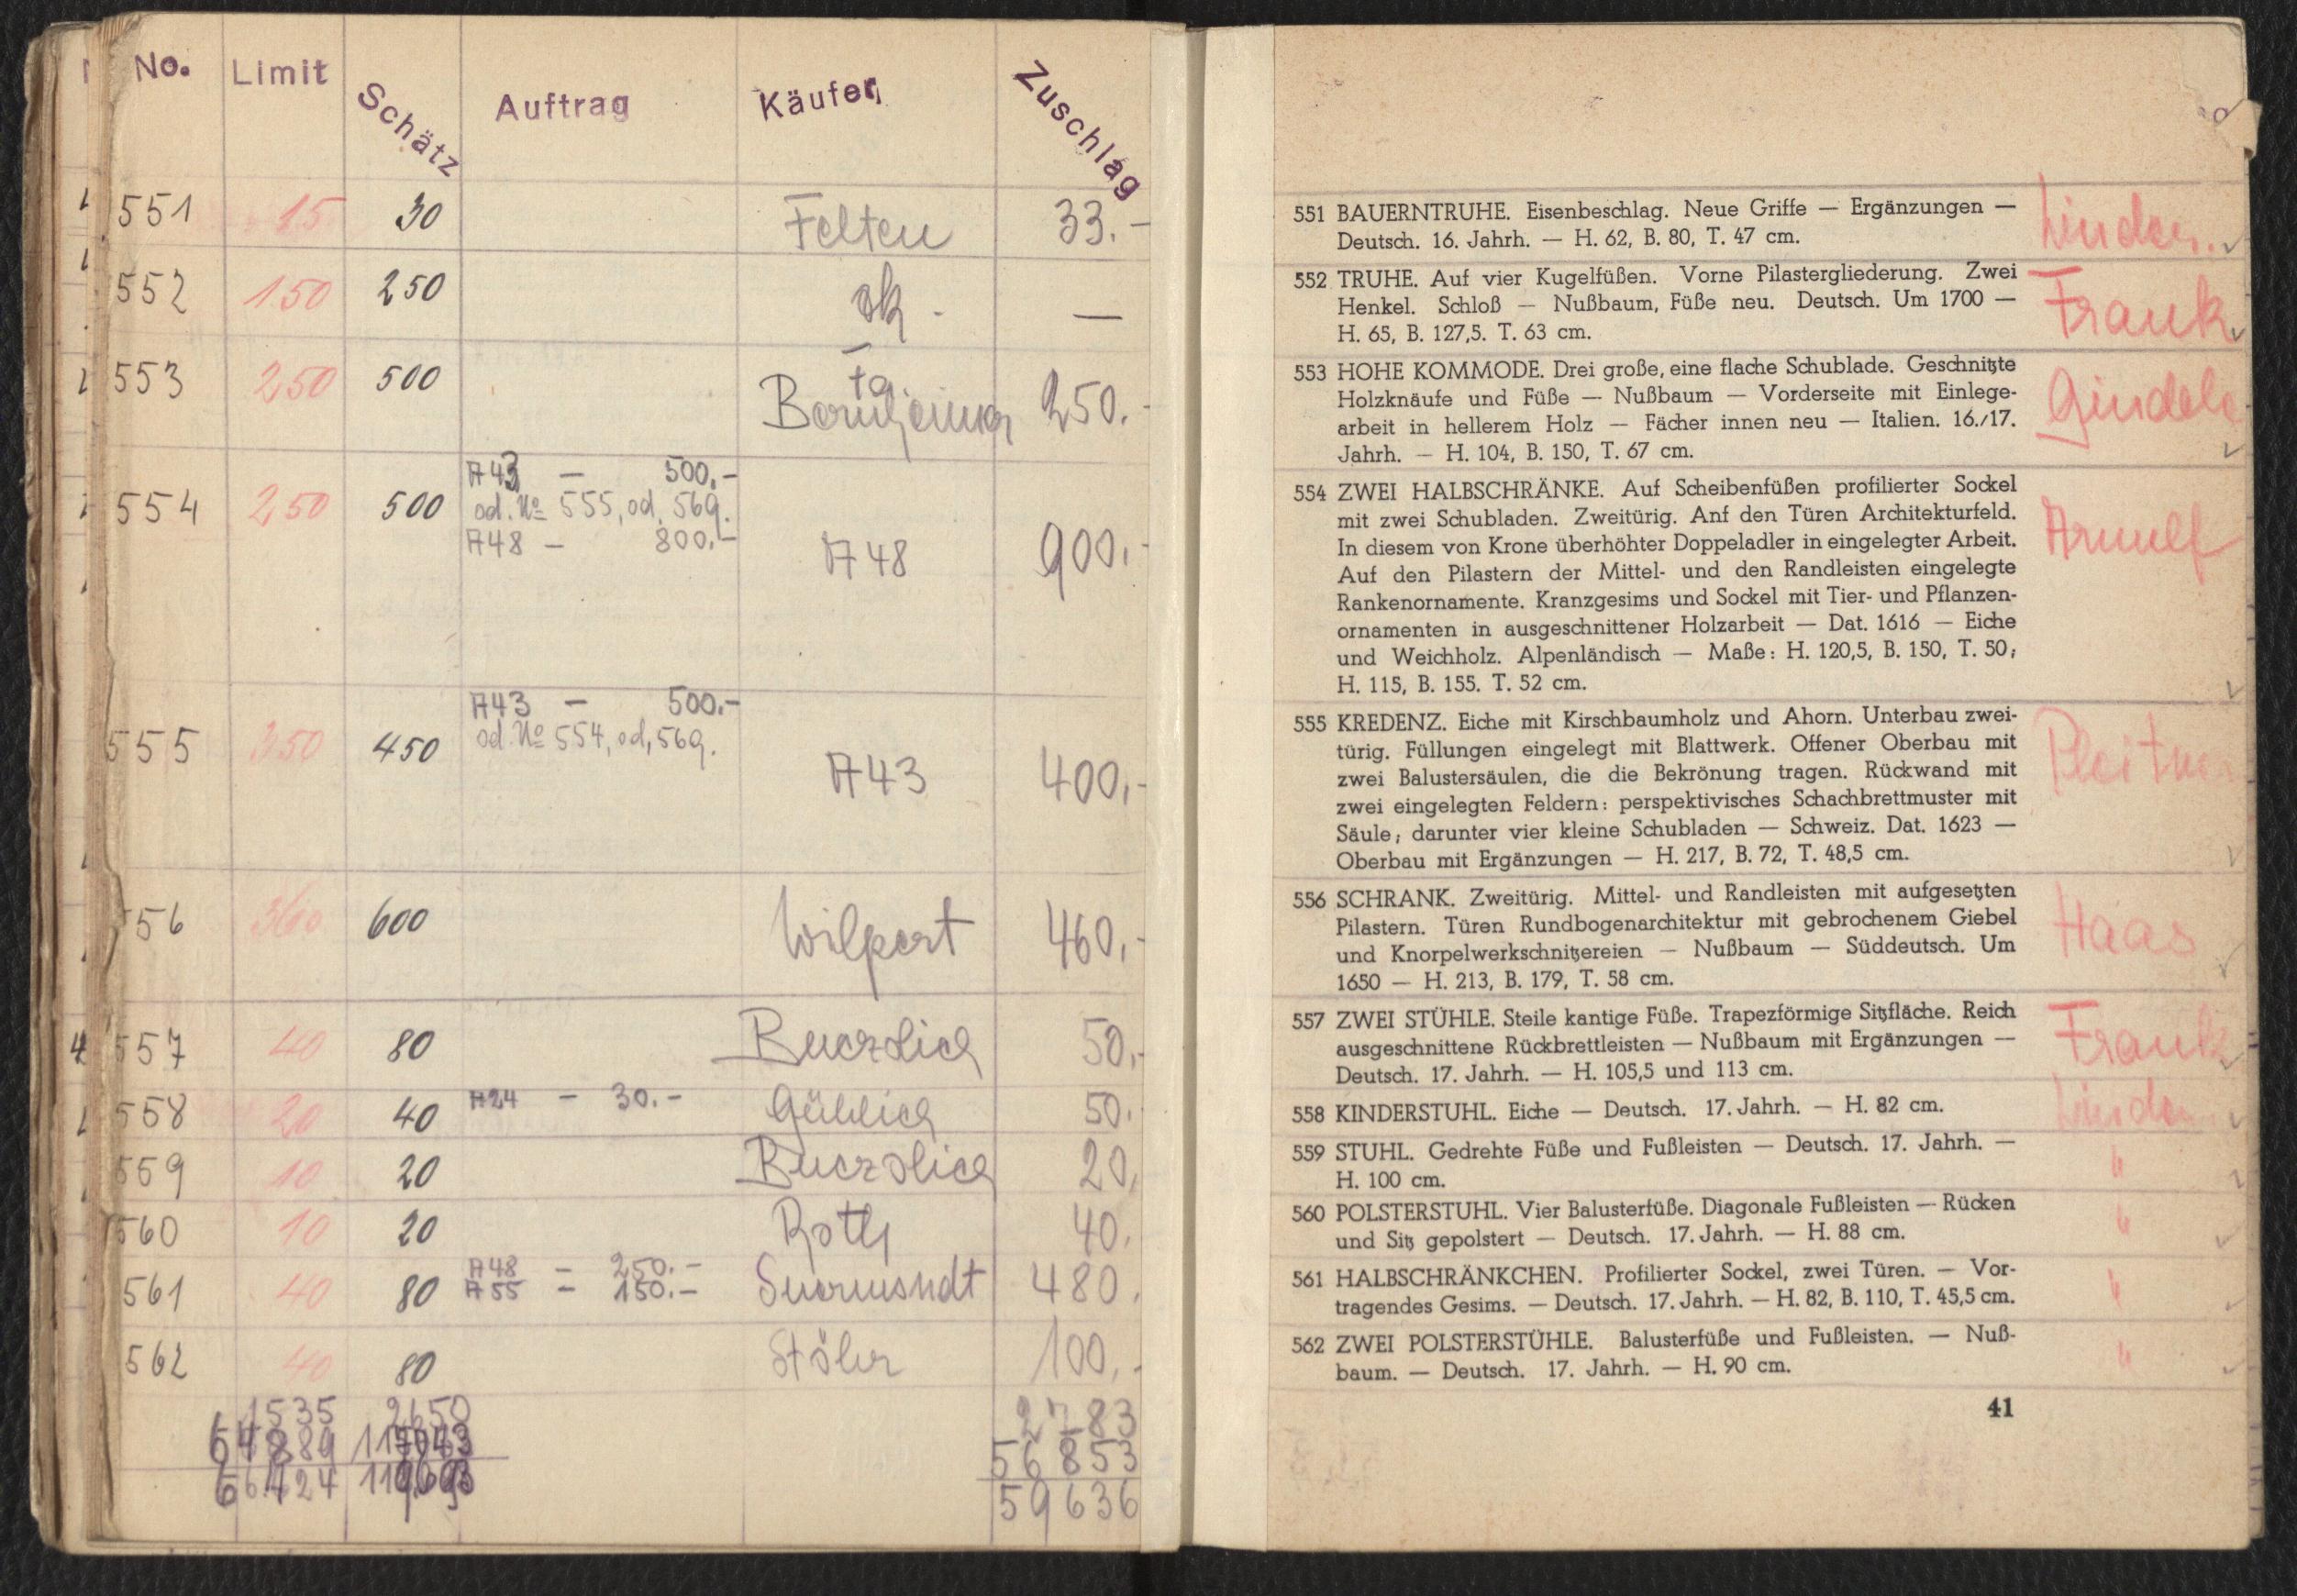 No. Limit Schätz Auftrag Käufer Zuschlag
551 15 30 Felten 33.-
552 150 250 —
553 250 500 250.-
A43 — 500,-
554 250 500 od. No 555, od. 569.
A48 — 800,- A48 900,-
A43 — 500.-
od. No 554, od, 569.
555 350 450 A43 400,-
556 360 600 Wilpert 460,-
557 40 80 50,-
558 20 40 A24 — 30.- 50.
559 10 20 20,
560 10 20 Roth 40.
A48 — 250.-
561 40 80 A55 — 150.- 480.
562 40 80 Stöhr 100,-
1535 2650 2783
64889 117043 56853
66424 119693 59636
551 BAUERNTRUHE. Eisenbeschlag. Neue Griffe — Ergänzungen — Linder.
Deutsch. 16. Jahrh. — H. 62, B. 80, T. 47 cm.
552 TRUHE. Auf vier Kugelfüßen. Vorne Pilastergliederung. Zwei
Henkel. Schloß — Nußbaum, Füße neu. Deutsch. Um 1700 — Frank
H. 65, B. 127,5. T. 63 cm.
553 HOHE KOMMODE. Drei große, eine flache Schublade. Geschnitzte
Holzknäufe und Füße — Nußbaum — Vorderseite mit Einlege- Gindele
arbeit in hellerem Holz — Fächer innen neu — Italien. 16./17.
Jahrh. — H. 104, B. 150, T. 67 cm.
554 ZWEI HALBSCHRÄNKE. Auf Scheibenfüßen profilierter Sockel
mit zwei Schubladen. Zweitürig. Anf den Türen Architekturfeld.
In diesem von Krone überhöhter Doppeladler in eingelegter Arbeit. Arnulf
Auf den Pilastern der Mittel- und den Randleisten eingelegte
Rankenornamente. Kranzgesims und Sockel mit Tier- und Pflanzen-
ornamenten in ausgeschnittener Holzarbeit — Dat. 1616 — Eiche
und Weichholz. Alpenländisch — Maße: H. 120,5, B. 150, T. 50;
H. 115, B. 155. T. 52 cm.
555 KREDENZ. Eiche mit Kirschbaumholz und Ahorn. Unterbau zwei-
türig. Füllungen eingelegt mit Blattwerk. Offener Oberbau mit
zwei Balustersäulen, die die Bekrönung tragen. Rückwand mit
zwei eingelegten Feldern: perspektivisches Schachbrettmuster mit
Säule; darunter vier kleine Schubladen — Schweiz. Dat. 1623 —
Oberbau mit Ergänzungen — H. 217, B. 72, T. 48,5 cm.
556 SCHRANK. Zweitürig. Mittel- und Randleisten mit aufgesetzten
Pilastern. Türen Rundbogenarchitektur mit gebrochenem Giebel Haas
und Knorpelwerkschnitzereien — Nußbaum — Süddeutsch. Um
1650 — H. 213, B. 179, T. 58 cm.
557 ZWEI STÜHLE. Steile kantige Füße. Trapezförmige Sitzfläche. Reich
ausgeschnittene Rückbrettleisten — Nußbaum mit Ergänzungen — Frank
Deutsch. 17. Jahrh. — H. 105,5 und 113 cm.
558 KINDERSTUHL. Eiche — Deutsch. 17. Jahrh. — H. 82 cm. Linder
559 STUHL. Gedrehte Füße und Fußleisten — Deutsch. 17. Jahrh. — "
H. 100 cm.
560 POLSTERSTUHL. Vier Balusterfüße. Diagonale Fußleisten — Rücken "
und Sitz gepolstert — Deutsch. 17. Jahrh. — H. 88 cm.
561 HALBSCHRÄNKCHEN. Profilierter Sockel, zwei Türen. — Vor- "
tragendes Gesims. — Deutsch. 17. Jahrh. — H. 82, B. 110, T. 45,5 cm.
562 ZWEI POLSTERSTÜHLE. Balusterfüße und Fußleisten. — Nuß- "
baum. — Deutsch. 17. Jahrh. — H. 90 cm.
41